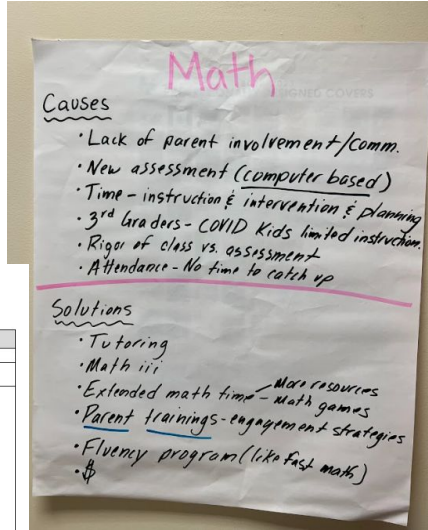 Math
SIGNED COVERS
Causes
• Lack of parent involvement/comm.
• New assessment (computer based)
• Time - instruction & intervention & planning
• 3rd Graders - COVID Kids limited instruction.
• Rigor of class vs. assessment
• Attendance - No time to catch up
Solutions
• Tutoring
• Math iii
• Extended math time - More resources
- Math games
• Parent trainings - engagement strategies
• Fluency program (like fast math)
• $